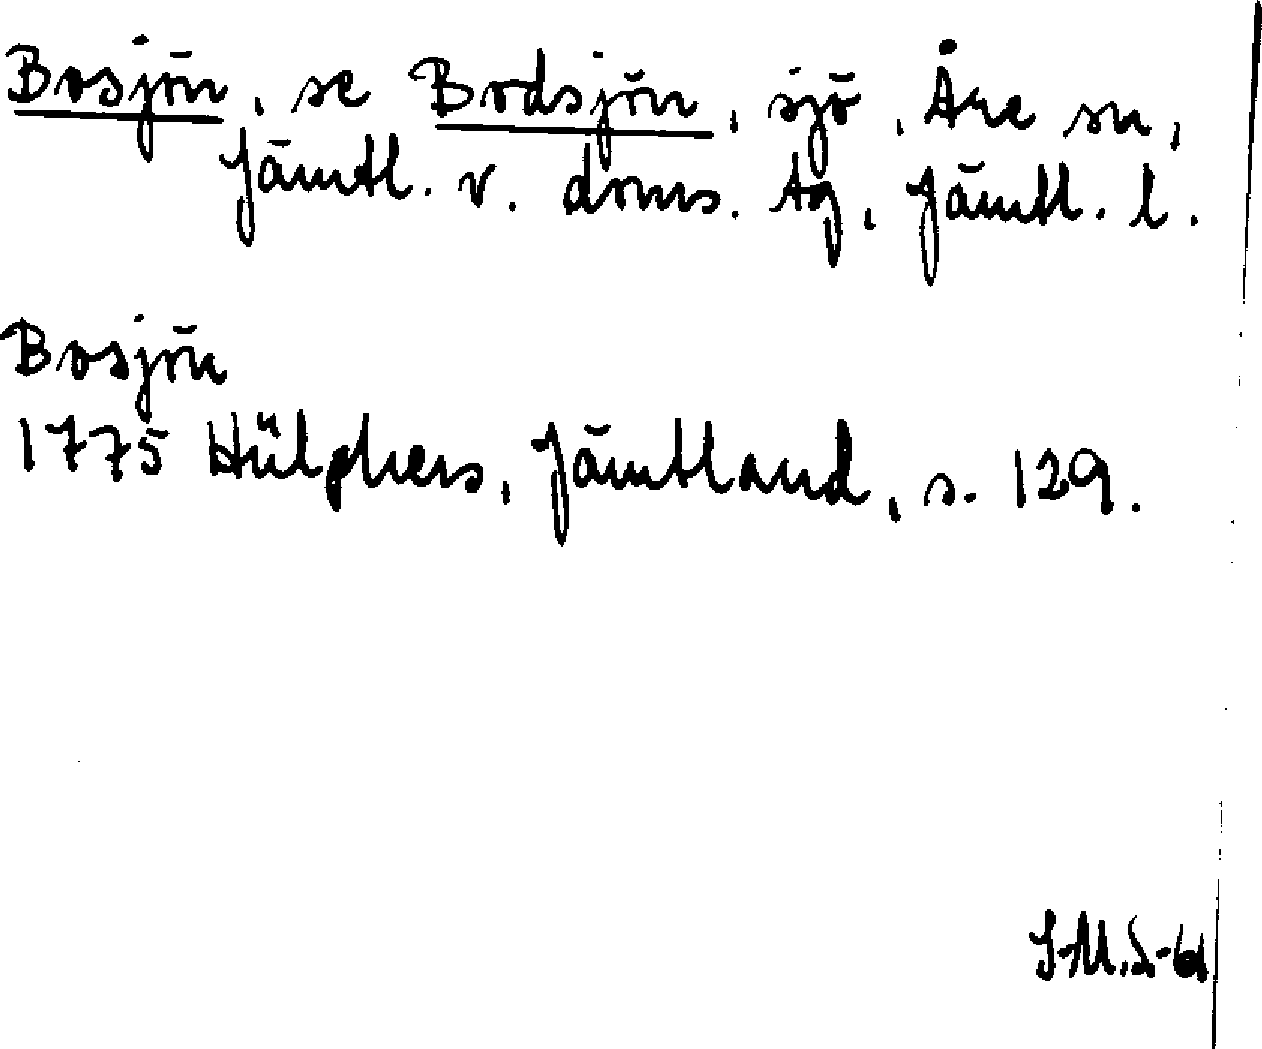 Bosjön, se Bodsjön, sjö, Åre sn,
Jämtl. v. doms. tg, Jämtl. l.
Bosjön
1775 Hülphers, Jämtland, s. 129.